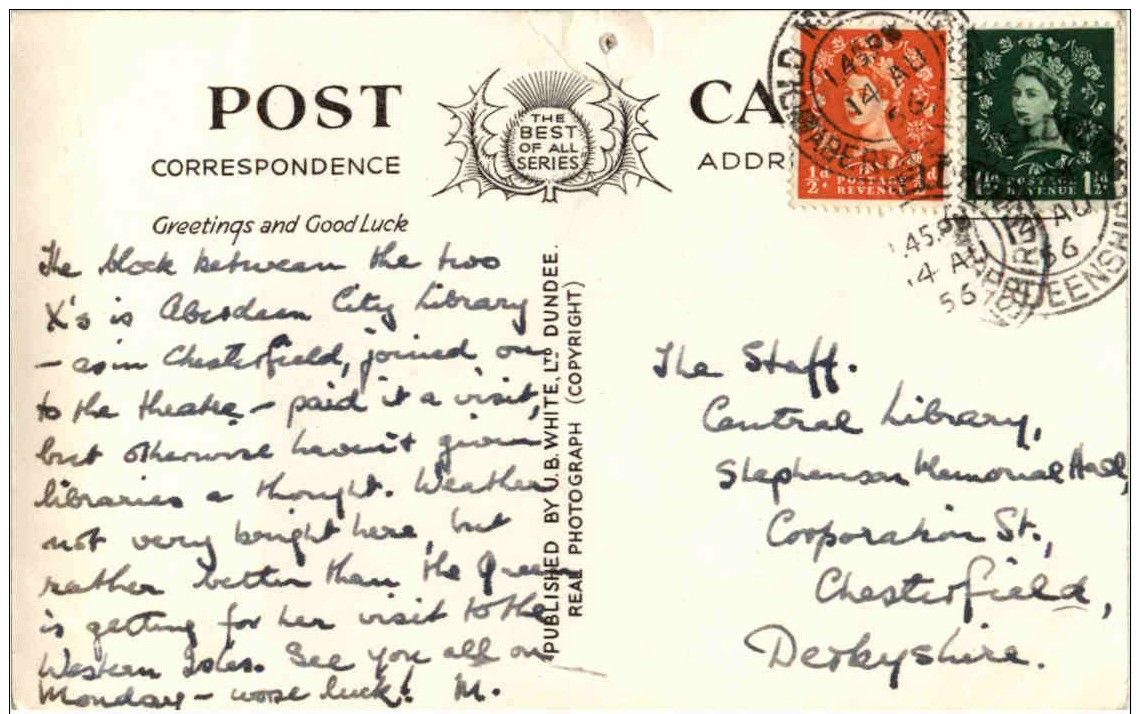 POST CA
THE
BEST
OF ALL
SERIES
CORRESPONDENCE
ADDR
Greetings and Good Luck
The block between the two
X's is Aberdeen City Library
— as in Chesterfield, joined on
to the theatre — paid it a visit,
but otherwise haven't given
libraries a thought. Weather
not very bright here, but
rather better than the Queen
is getting for her visit to the
Western Isles. See you all on
Monday — worse luck! M.
PUBLISHED BY U.B. WHITE, LTD DUNDEE.
REAL PHOTOGRAPH (COPYRIGHT)
The Staff.
Central Library,
Stephenson Memorial Hall,
Corporation St.,
Chesterfield,
Derbyshire.
1.45 PM
14 AU
56
½d POSTAGE ½d
REVENUE
1½d REVENUE 1½d
1.45 PM
14 AU
56
AU
56